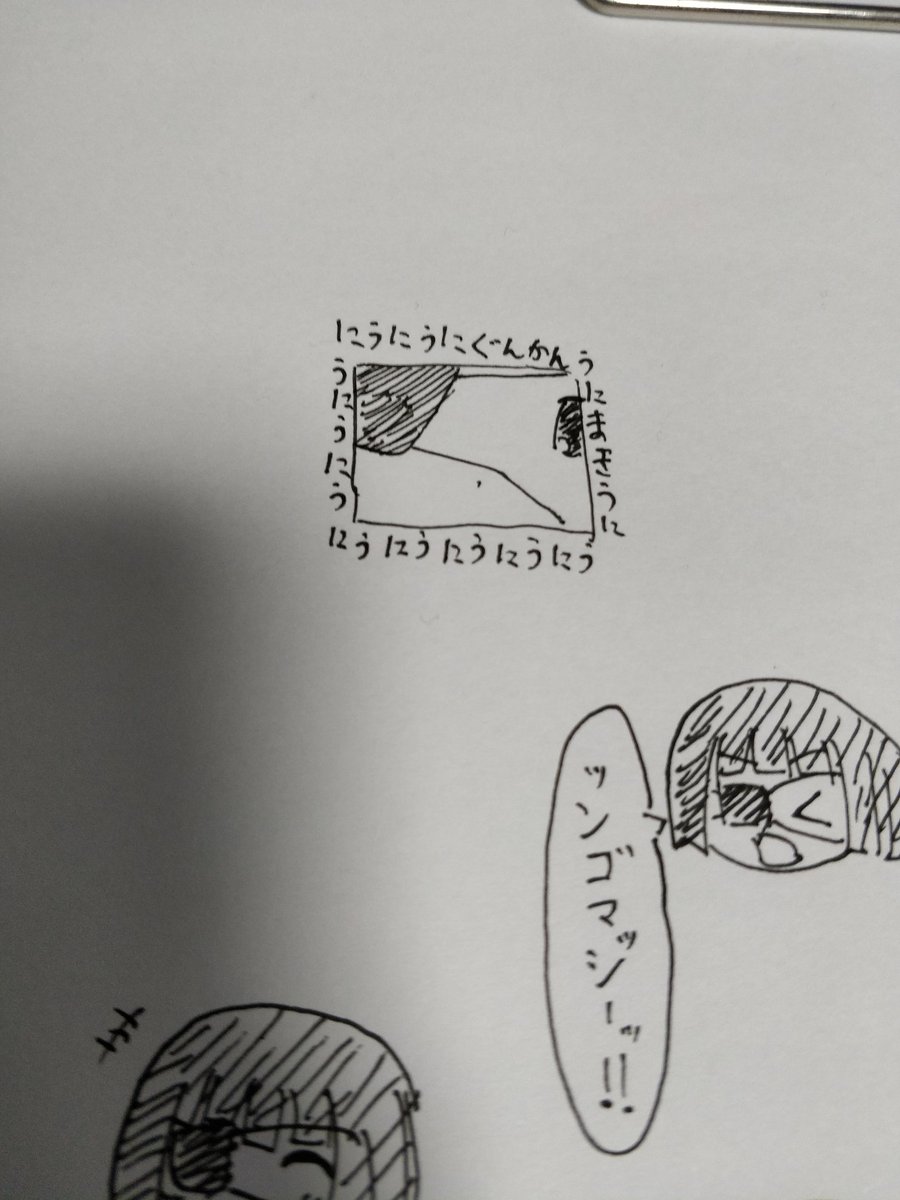 にうにうにぐんかん
うにうにう
うにまきうに
にうにうにうにうにう
ツンゴマッシーッ!!
キキ